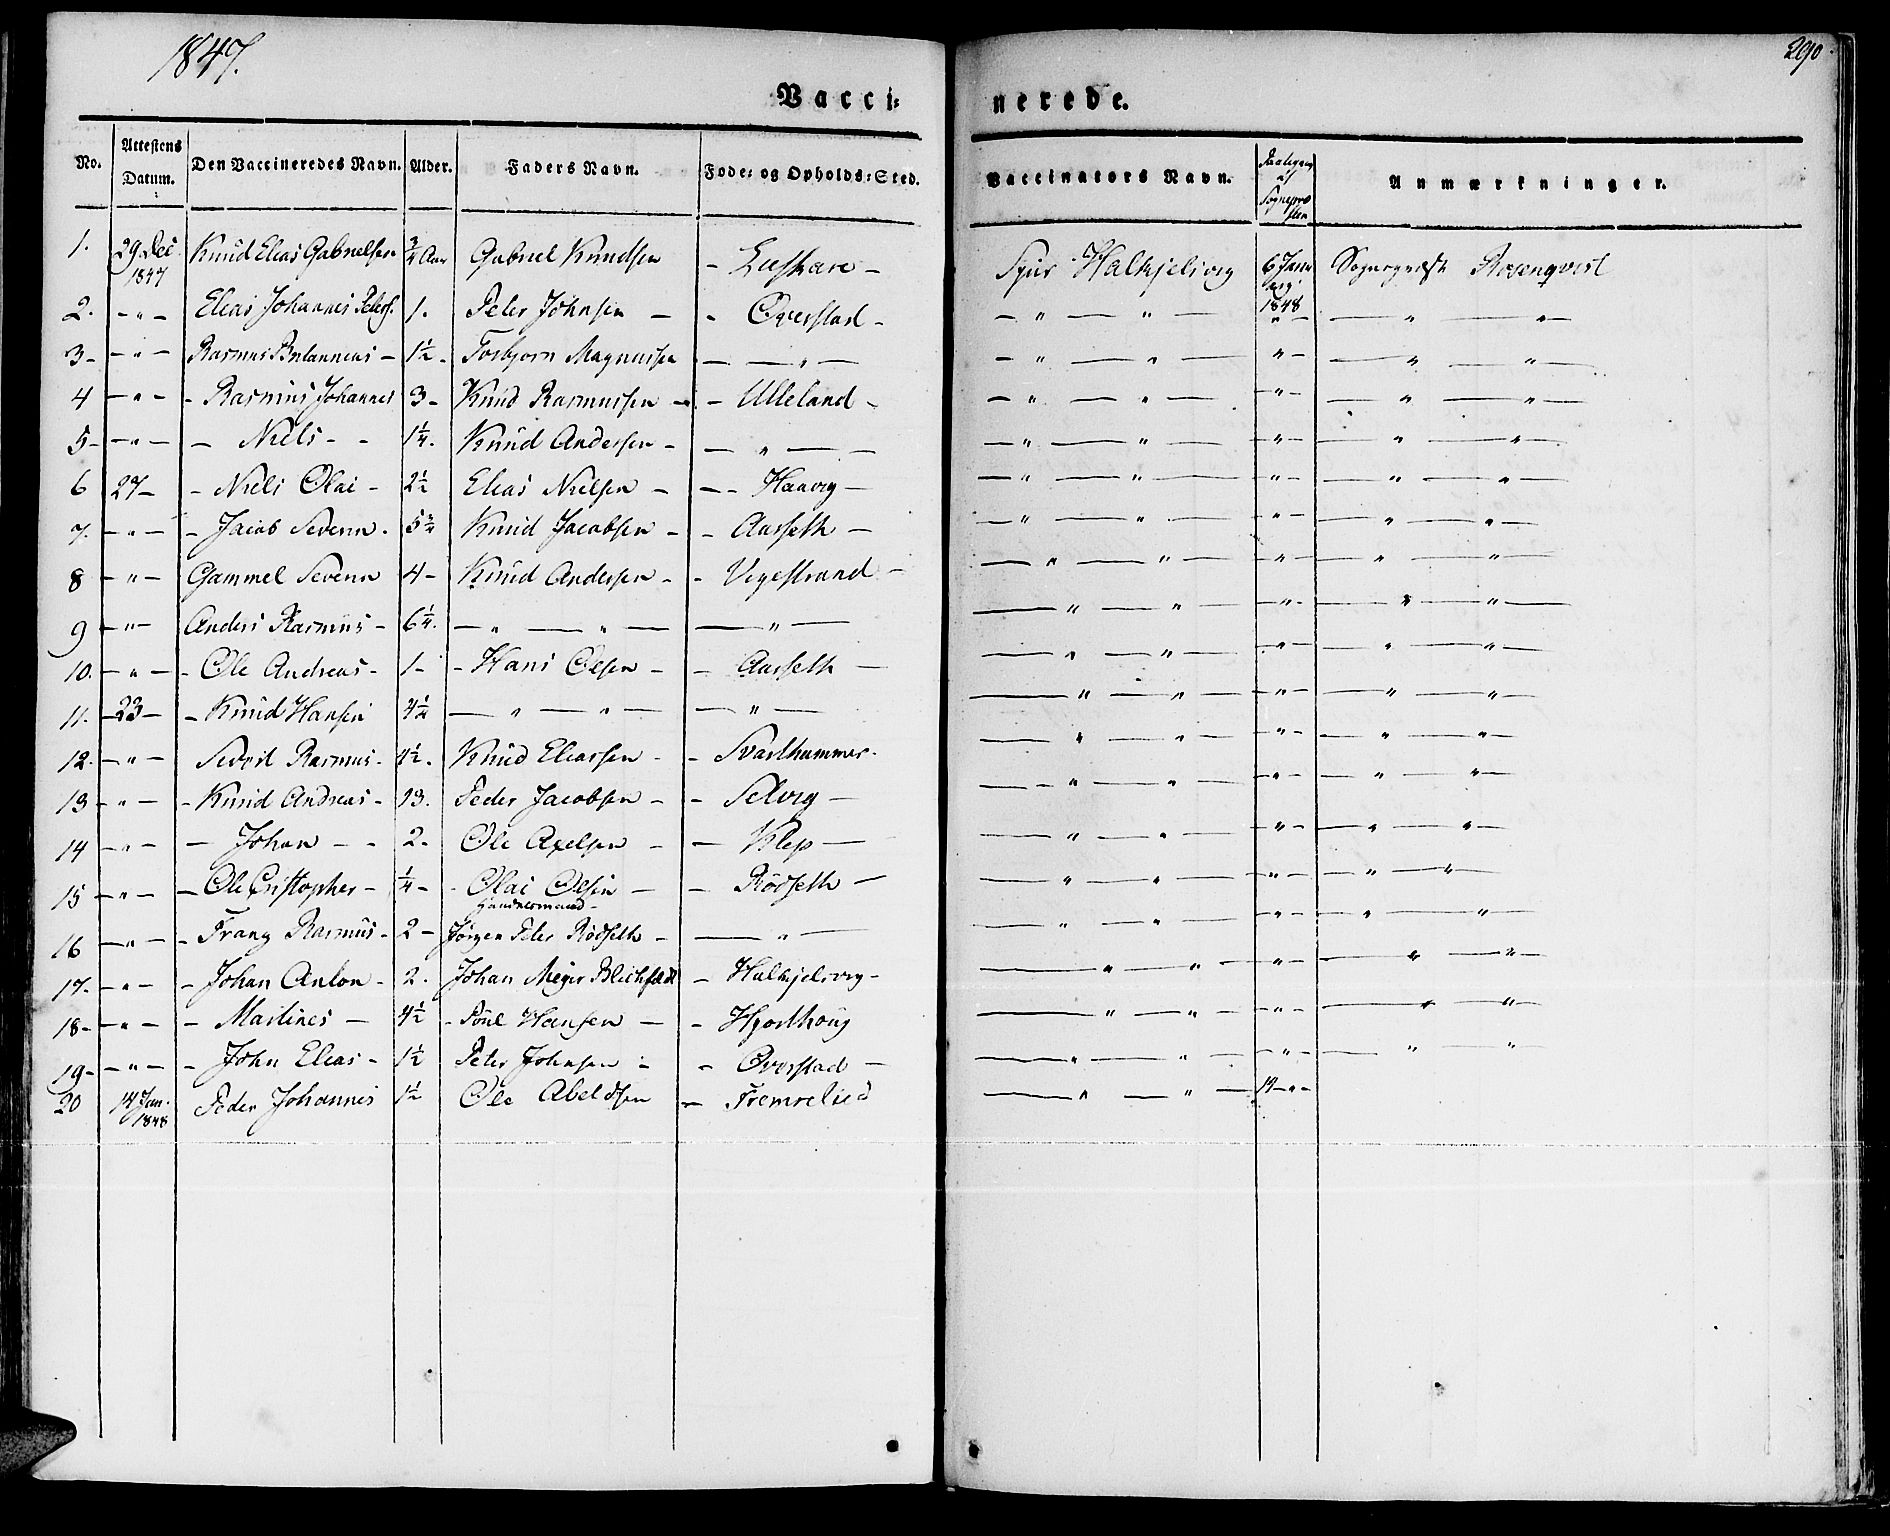 1847.
290.
Vacci-
nerede.
No. Attestens Datum. Den Vaccineredes Navn. Alder. Faders Navn. Føde- og Opholds-Sted. Vaccinators Navn. Anmærkninger.
1. 29 Dec 1847 Knud Elias Gabrielsen 3/4 Aar Gabriel Knudsen – – Sjur Halkjelsvig 6 Janu 1848 Sogneprest Rosenqvist
2. – " – Elias Johannes Peters. 1. Peter Johnsen – – Øverstad – – " – " – " – – " – " –
3 – – " – Rasmus Britannius – 1½ – Torbjørn Magnussen – – " – – " – " – " – – " – " –
4 – " – – Rasmus Johannes 3 – Knud Rasmussen – – Ulleland – – " – " – " – – " – " –
5 – – " – – Niels – – 1¼. Knud Andersen – – " – – – " – " – " – – " – " –
6 27 – – Niels Olai – 2½ Elias Nielsen – – – Haavig – – " – " – " – – " – " –
7. – " – – Jacob Severin. 5¾ Knud Jacobsen – – Aasseth – – " – " – " – – " – " –
8 – " – Gammel Severin 4 – Knud Andersen – – Vigestrand – – " – " – " – – " – " –
9 – " – Anders Rasmus – 6¼. – " – " – – " – – " – " – – " – – " – " –
10. – " – – Ole Andreas – 1 – – Hans Olsen – – Aasseth – – " – " – " – – " – " –
11. – 23 – – Knud Hansen 4¼ – " – " – – " – – " – " – – " – – " – " –
12. – " – Sivert Rasmus – 4½. Knud Eliassen – – Svarthammer. – " – " – " – – " – " –
13 – " – – Knud Andreas – 13. Peder Jacobsen – – Selvig – – " – " – " – – " – " –
14 – " – – Johan – – 2. Ole Axelsen – – Klep – – " – " – – " – – " – " –
15 – " – – Ole Cristopher – ¼ – – Olai Olsen – – Rödseth – – " – " – – " – – " – " –
16 – " – – Franz Rasmus – 2 – Jørgen Peter Rödseth – – " – – " – " – – " – – " – " –
17. – " – – Johan Anton – 2. Johan Meyer Blichfeldt – Halkjelsvig – – " – " – – " – – " – " –
18 – – " – – Martines – 4½ – Poul Hansen – – Hjorthoug – " – " – – " – – " – " –
19 – – " – – John Elias – 1½ Peter Johnsen – – Øverstad – – " – " – – " – – " – " –
20 14 Jan. 1848 Peder Johannes 1½ Ole Abeldsen – Fremrelied – " – " – 14 – " –